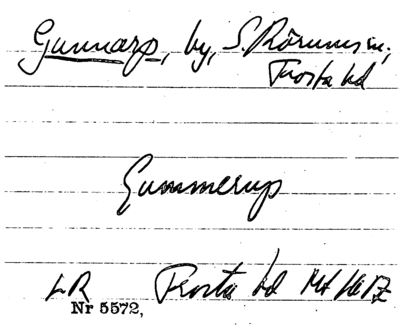 Gunnarp, by, S. Rörums sn,
Frosta hd
Gummerup
LR Frosta hd
Nr 5572,